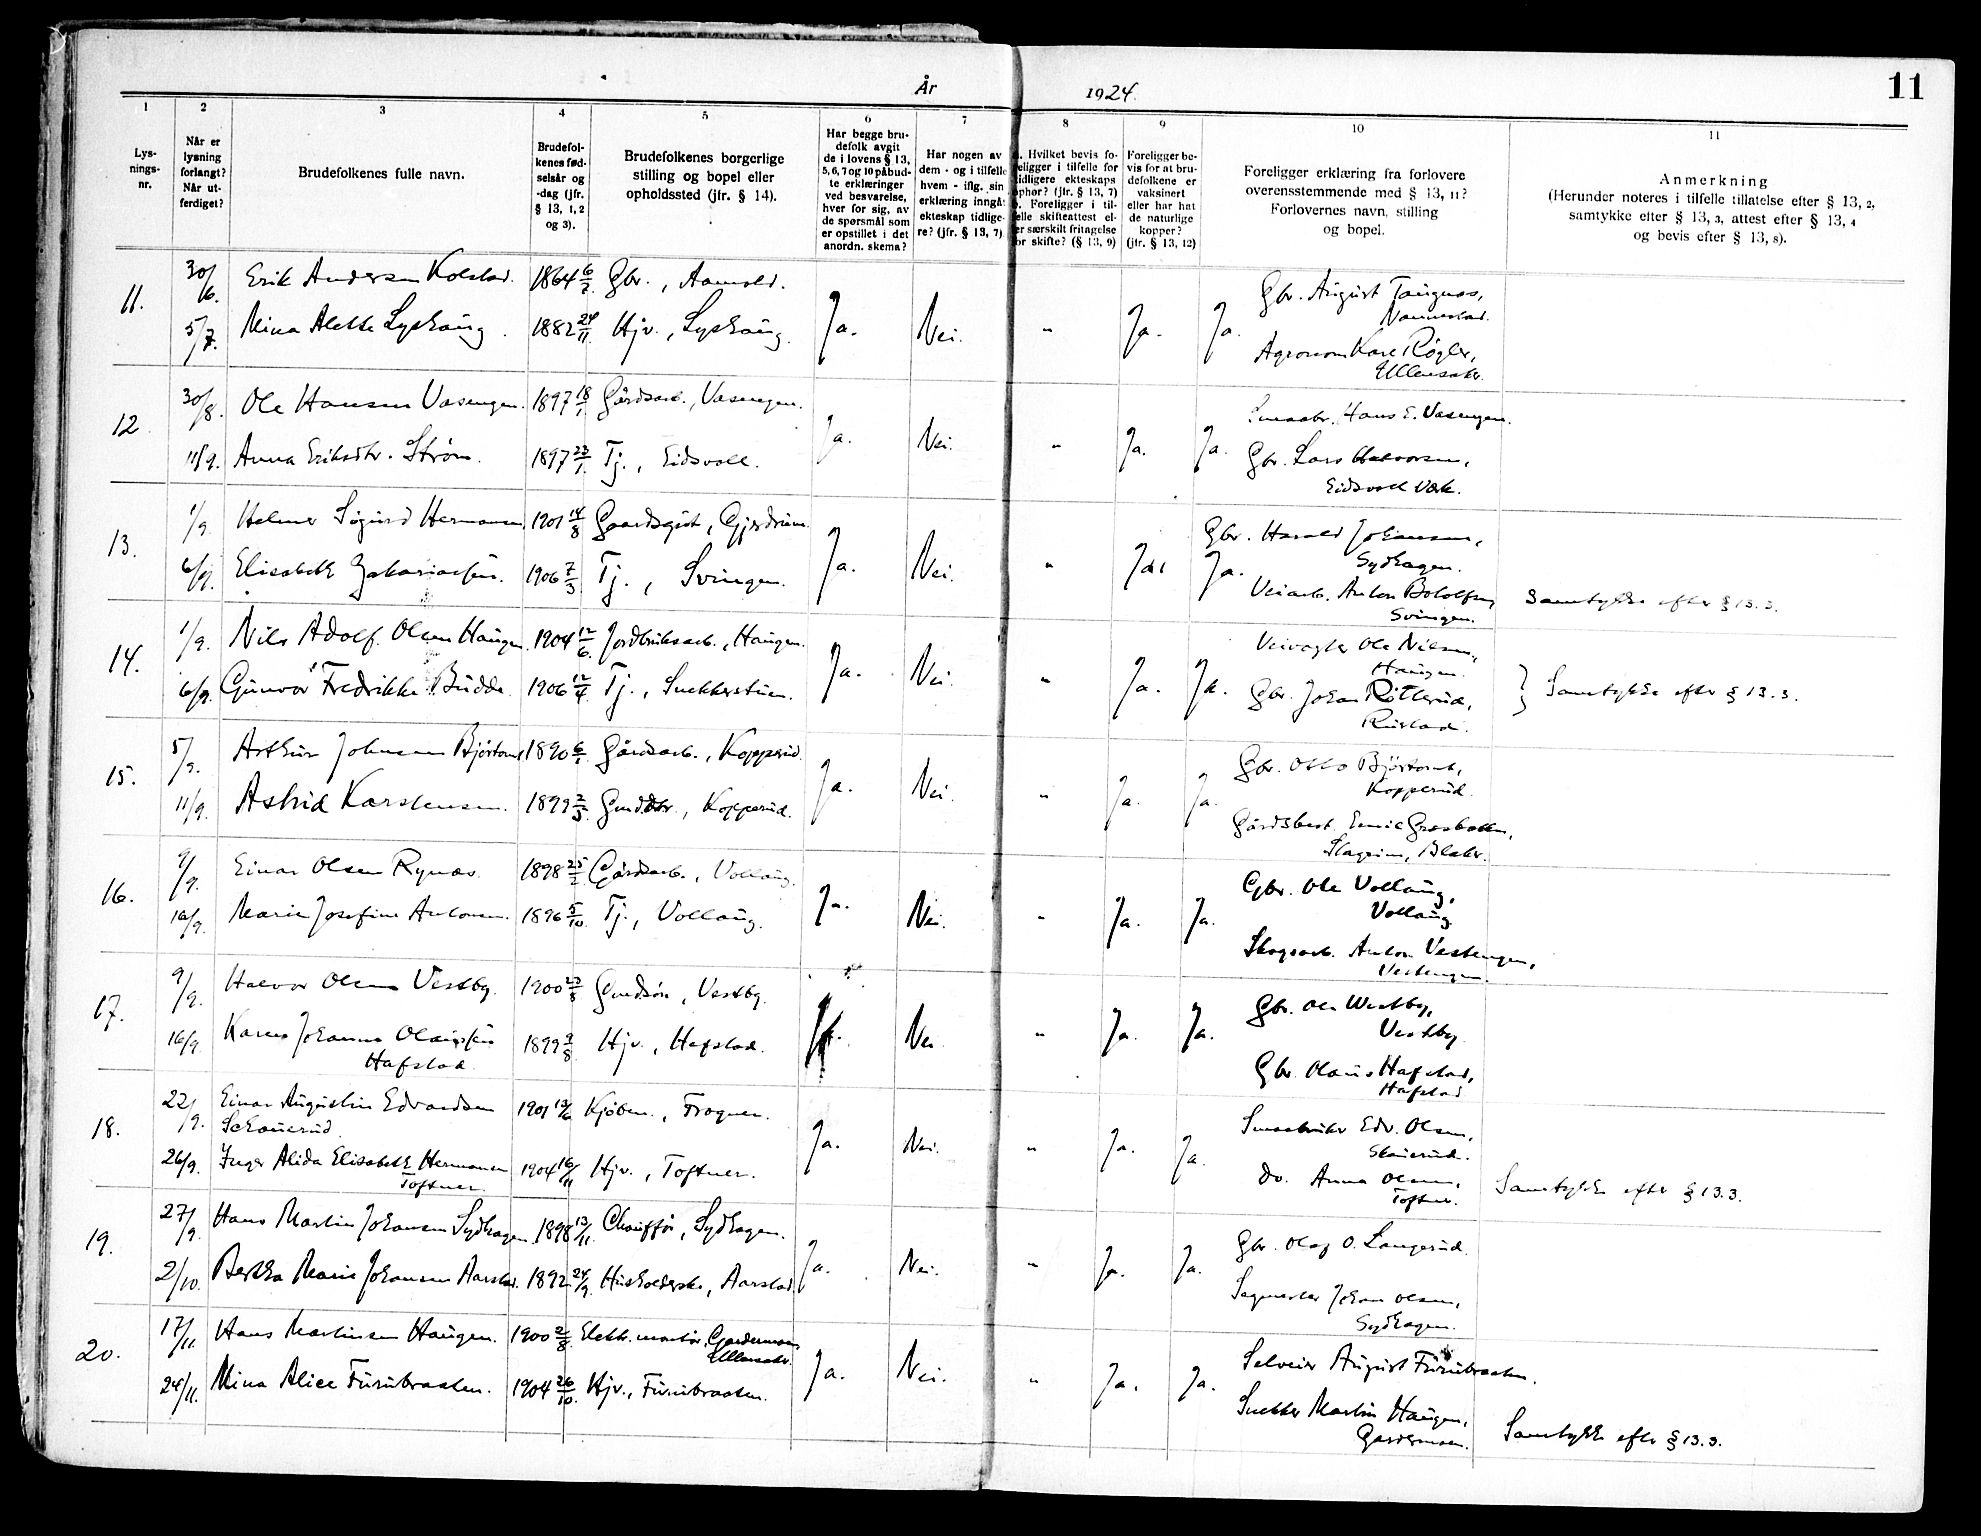 11
År 1924.
1 2 3 4 5 6 7 8 9 10 11
Lys-
nings-
nr.
Når er
lysning
forlangt?
Når ut-
ferdiget?
Brudefolkenes fulle navn.
Brudefol-
kenes fød-
selsår og
-dag (jfr.
§ 13, 1, 2
og 3).
Brudefolkenes borgerlige
stilling og bopel eller
opholdssted (jfr. § 14).
Har begge bru-
defolk avgit
de i lovens § 13,
5, 6, 7 og 10 påbud-
te erklæringer
ved besvarelse,
hver for sig, av
de spørsmål som
er opstillet i det
anordn. skema?
Har nogen av
dem - og i tilfelle
hvem - iflg. sin
erklæring inngåt
ekteskap tidlige-
re? (jfr. § 13, 7)
a. Hvilket bevis fo-
religger i tilfelle for
tidligere ekteskaps
ophør? (jfr. § 13, 7)
b. Foreligger i til-
felle skifteattest el-
ler særskilt fritagelse
for skifte? (§ 13, 9)
Foreligger be-
vis for at bru-
defolkene er
vaksinert
eller har hat
de naturlige
kopper?
(jfr. § 13, 12)
Foreligger erklæring fra forlovere
overensstemmende med § 13, 11?
Forlovernes navn, stilling
og bopel.
Anmerkning
(Herunder noteres i tilfelle tillatelse efter § 13, 2,
samtykke efter § 13, 3, attest efter § 13, 4
og bevis efter § 13, 8).
11. 30/6. Erik Andersen Kolstad. 1864 6/2. Gbr., Aamold.
5/7. Mina Alette Lyshaug. 1882 24/11. Hjv., Lyshaug. Ja. Nei. " Ja. Ja.
Gbr. August Taugnæs,
Nannestad.
Agronom Kare Røgler,
Ullensaker.
12 30/8. Ole Hansen Vasengen. 1897 18/1 Gårdsarb., Vasengen.
11/9. Anna Eriksdtr. Strøm. 1897 23/1. Tj., Eidsvoll. Ja. Nei. " Ja. Ja.
Smaabr. Hans E. Vasengen.
Gbr. Lars Halvorsen,
Eidsvoll Værk.
13. 1/9. Helmer Sigurd Hermansen 1901 14/8 Gaardsgut, Gjerdrum.
6/9. Elisabeth Zakariassen. 1906 7/3 Tj., Svingen. Ja. Nei. " Ja. Ja.
Gbr. Harald Johansen,
Sydhagen.
Veiarb. Anton Bololfsen,
Svingen.
Samtykke efter § 13.3.
14. 1/9. Nils Adolf Olsen Haugen 1904 12/6. Jordbruksarb., Haugen.
6/9. Gunvor Fredrikke Budde. 1906 12/4 Tj., Snekkerstuen. Ja. Nei. " Ja. Ja.
Veivogter Ole Nilsen,
Haugen.
Gbr. Johan Rotterud,
Rustad.
} Samtykke efter § 13.3.
15. 5/9. Arthur Johnsen Bjørtomt 1890 6/1 Gårdsarb., Kopperud.
11/9. Astrid Karstensen. 1899 2/3 Gmdtr., Kopperud. Ja. Nei. " Ja. Ja.
Gbr. Otto Bjørtomt,
Kopperud.
Gårdsbest. Emil Græsbakken,
Blaker.
16. 9/9. Einar Olsen Rynæs. 1898 25/2 Gårdsarb., Vollaug.
16/9. Marie Josefine Antonsen. 1896 5/10 Tj., Vollaug. Ja. Nei. " Ja. Ja.
Gbr. Ole Vollaug,
Vollaug
Skogsarb. Anton Vestengen,
Vestengen.
17. 9/9. Halvor Olsen Vestby. 1900 23/8 Gmdsøn, Vestby.
16/9. Karen Johanne Olaussen
Hafslad. 1899 9/8 Hjv., Hafslad. Ja. Nei " Ja. Ja.
Gbr. Ole Westby,
Vestby
Gbr. Olaus Hafslad,
Hafslad
18. 22/9. Einar Augustin Edvardsen
Skauerud. 1901 12/6 Kjøbm., Frogner.
26/9. Inger Alida Elisabeth Hermansen
Toftner. 1904 16/11 Hjv., Toftner. Ja. Nei. " Ja. Ja.
Smaabruker Edv. Olsen,
Skauerud.
Do. Anna Olsen,
Toftner.
Samtykke efter § 13.3.
19. 27/9. Hans Martin Johansen Sydhagen 1898 13/11. Chauffør, Sydhagen.
2/10. Bertha Marie Johansen Aarstad. 1892 24/9. Husholderske, Aarstad Ja. Nei. " Ja. Ja.
Gbr. Olaf O. Langerud.
Sagmester Johan Olsen,
Sydhagen.
20. 17/11. Hans Martinsen Haugen. 1900 2/8. Elektr. montør, Gardermoen
Ullensaker.
24/11. Mina Alice Furubraaten. 1904 26/10. Hjv., Furubraaten. Ja. Nei. " Ja. Ja.
Selveier August Furubraaten.
Snekker Martin Haugen,
Gardermoen.
Samtykke efter § 13.3.